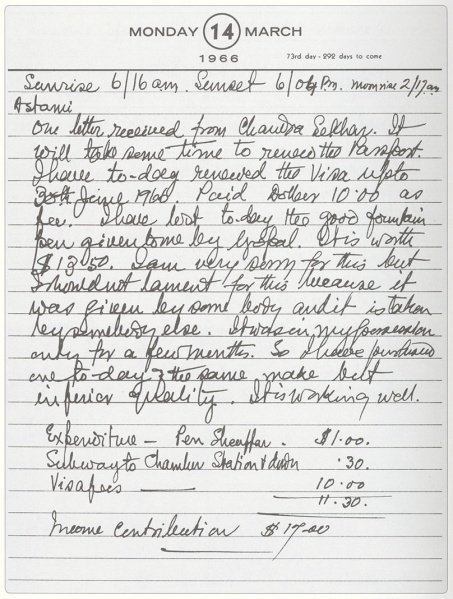 MONDAY 14 MARCH
1966
73rd day - 292 days to come
Sunrise 6/16 am. Sunset 6/04 P.m. moonrise 2/17 am
Astami
One letter received from Chandra Sekhar. It
will take some time to renew the Passport.
I have to-day renewed the Visa upto
30th June 1966. Paid Dollar 10.00 as
fee. I have lost to-day the good fountain
pen given to me by Gopal. It is worth
$13.50. I am very sorry for this but
I should not lament for this because it
was given by some body and it is taken
by somebody else. It was in my possession
only for a few months. So I have purchased
one to-day the same make but
inferior quality. It is working well.
Expenditure — Pen Sheaffer. $1.00.
Subway to Chamber Station & down .30.
Visa fees — 10.00
11.30.
Income Contribution $17.00